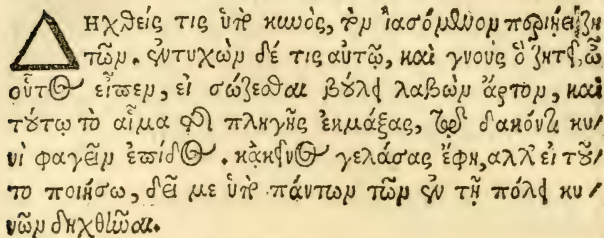 Δηχθείς τις ὑπὸ κυνὸς, τὸν ἰασόμενον περιῄει ζη/
τῶν. ἐντυχὼν δέ τις αὐτῷ, καὶ γνοὺς ὃ ζητεῖ, ὦ
οὗτος εἶπεν, εἰ σώζεσθαι βούλει λαβὼν ἄρτον, καὶ
τούτῳ τὸ αἷμα τῆς πληγῆς ἐκμάξας, τῷ δακόντι κυ/
νὶ φαγεῖν ἐπίδος. κἀκεῖνος γελάσας ἔφη, ἀλλ' εἰ τοῦ/
το ποιήσω, δεῖ με ὑπὸ πάντων τῶν ἐν τῇ πόλει κυ/
νῶν δηχθῆναι.